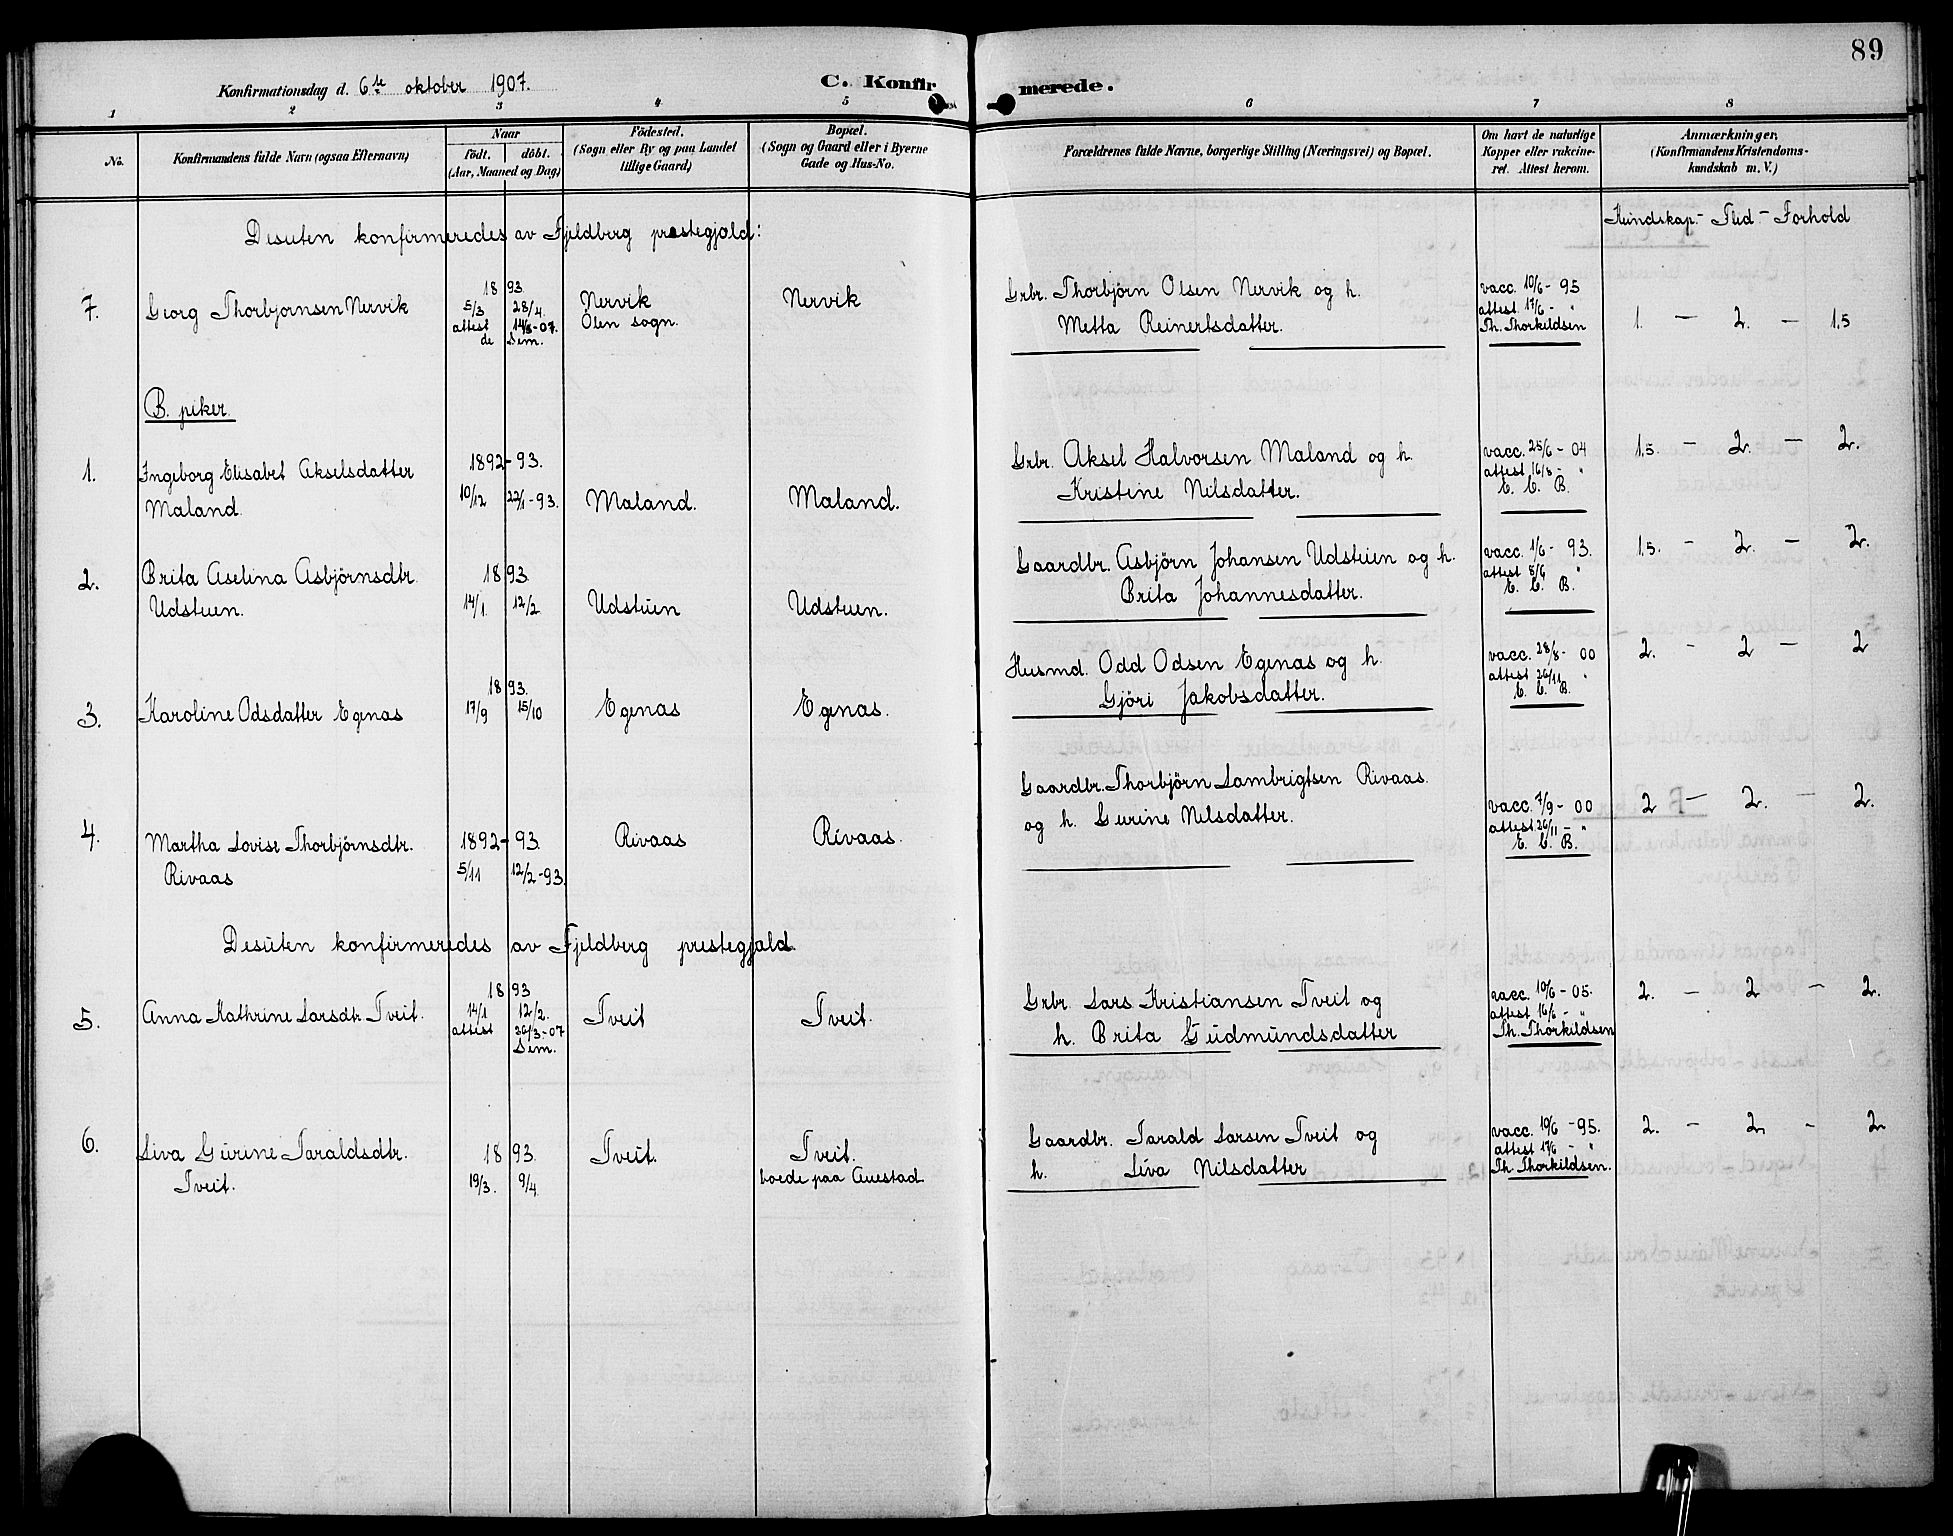 89
Konfirmationsdag d. 6te oktober 1907.
C. Konfirmerede.
1 2 3 4 5 6 7 8
No.
Konfirmandens fulde Navn (ogsaa Efternavn)
Naar
født. døbt.
(Aar, Maaned og Dag)
Fødested.
(Sogn eller By og paa Landet
tillige Gaard)
Bopæl.
(Sogn og Gaard eller i Byerne
Gade og Hus-No.
Forældrenes fulde Navne, borgerlige Stilling (Næringsvei) og Bopæl.
Om havt de naturlige
Kopper eller vakcine-
ret. Attest herom.
Anmærkninger,
(Konfirmandens Kristendoms-
kundskab m. V.)
Kundskap - Flid - Forhold
Desuten konfirmeredes av Fjeldberg prestegjald:
7. Georg Thorbjørnsen Nervik
1893
5/3 28/4.
attest 14/8-07.
de Sem.
Nervik
Ölen sogn.
Nervik
Grbr. Thorbjörn Olsen Nervik og h.
Metta Reinertsdatter.
vacc. 10/6 - 95
attest 17/6 - "
Th. Thorkildsen
1. - 2. - 1,5
B. piker.
1. Ingeborg Elisabet Akselsdatter
Maland.
1892-93.
10/12 22/1-93.
Maland.
Maland.
Grbr. Aksel Halvorsen Maland og h.
Kristine Nilsdatter.
vacc. 25/6 - 04
attest 16/8 - "
E. C. B.
1,5. - 2. - 2.
2. Brita Aselina Asbjörnsdtr.
Udstuen.
1893.
14/1. 12/2
Udstuen
Udstuen.
Gaardbr. Asbjörn Johansen Udstuen og h.
Brita Johannesdatter.
vacc. 1/6 - 93.
attest 8/6 "
E. C. B.
1,5. - 2. - 2.
3. Karoline Odsdatter Egenas
1893.
17/9 15/10
Egenas
Egenas.
Husmd. Odd Odsen Egenas og h.
Gjöri Jakobsdatter.
vacc. 28/8 - 00
attest 26/11 "
E. C. B.
2. - 2 - 2
4. Martha Lovise Thorbjörnsdtr.
Rivaas
1892-93.
5/11 12/2-93.
Rivaas
Rivaas.
Gaardbr. Thorbjörn Lambrigtsen Rivaas.
og h. Gurine Nilsdatter.
vacc. 7/9 - 00
attest 26/11 - "
E. C. B.
2 - 2. - 2.
Desuten konfirmeredes av Fjeldberg prestegjald.
5. Anna Kathrine Larsdtr Tveit.
1893
14/1 12/2.
attest 26/3-07
Sem.
Tveit
Tveit.
Grbr. Lars Kristiansen Tveit og
h. Brita Gudmundsdatter
vacc. 10/6 - 05.
attest 16/6 - "
Th. Thorkildsen
2. - 2 - 2.
6. Siva Gurine Taraldsdtr.
Tveit.
1893.
19/3. 9/4.
Tveit.
Tveit.
boede paa Auestad
Gaardbr. Tarald Larsen Tveit og
h. Siva Nilsdatter
vacc. 10/6 - 95.
attest 17/6 - "
Th. Thorkildsen.
2. - 2 - 2